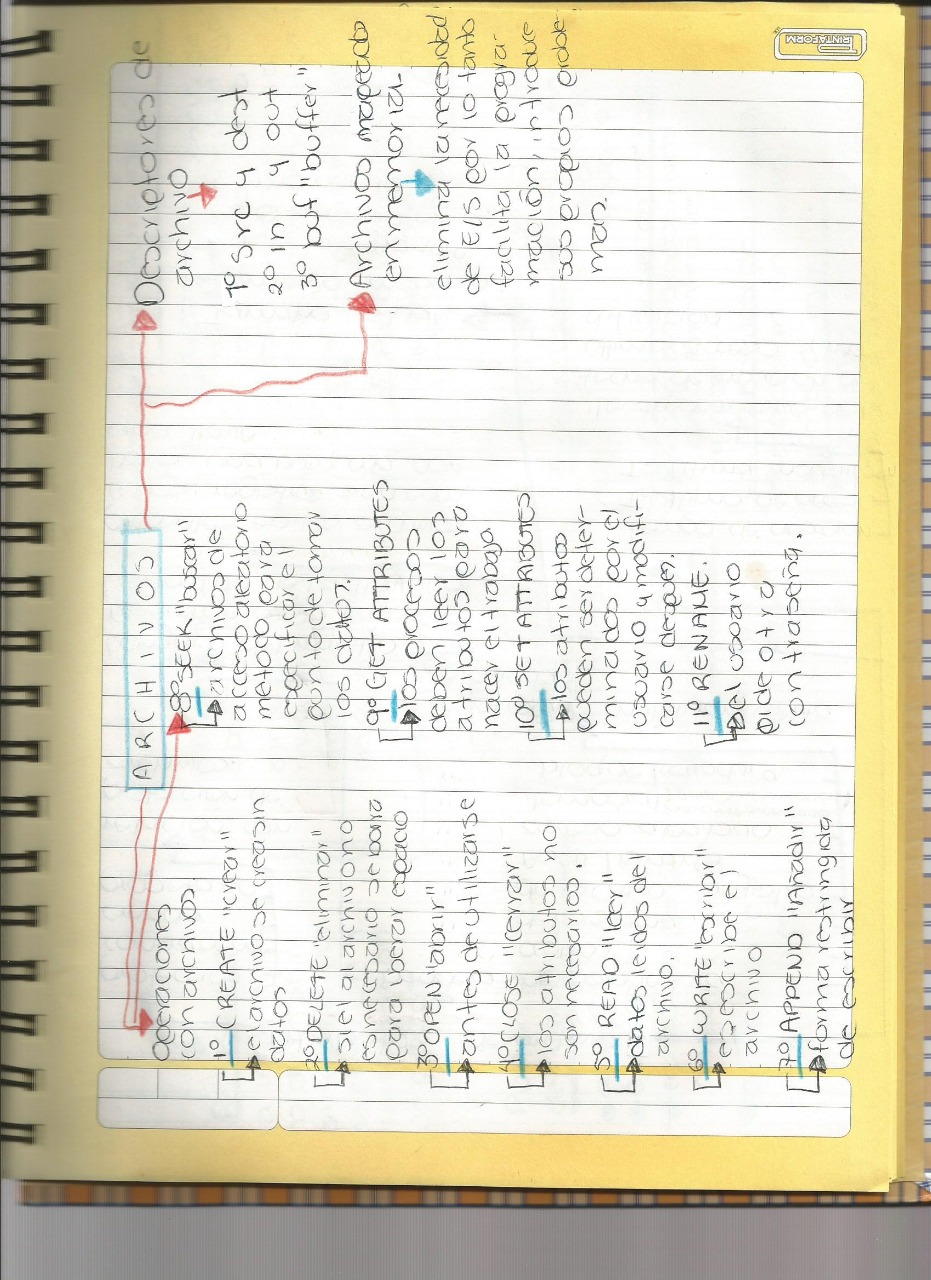 ARCHIVOS
Operaciones
con archivos.
1º CREATE "crear"
el archivo se crea sin
datos
2º DELETE "eliminar"
si el archivo no
es necesario se borra
para liberar espacio
3º OPEN "abrir"
antes de utilizarse
4º CLOSE "cerrar"
los atributos no
son necesarios.
5º READ "leer"
datos leidos del
archivo.
6º WRITE "escribir"
es escribe el
archivo
7º APPEND "Añadir"
forma restringida
de escribir
8º SEEK "buscar"
archivos de
acceso aleatorio
metodo para
especificar el
punto de tomar
los datos.
9º GET ATTRIBUTES
los procesos
deben leer los
atributos para
hacer el trabajo
10º SET ATTRIBUTES
los atributos
pueden ser deter-
minados por el
usuario y modifi-
carse despues.
11º RENAME.
el usuario
pide otra
contraseña.
Descriptores de
archivo
1º src y dest
2º in y out
3º buf "buffer"
Archivos mapeado
en memoria.
elimina la necesidad
de E/S por lo tanto
facilita la progra-
mación, introduce
sus propios proble-
mas.
PRINTAFORM